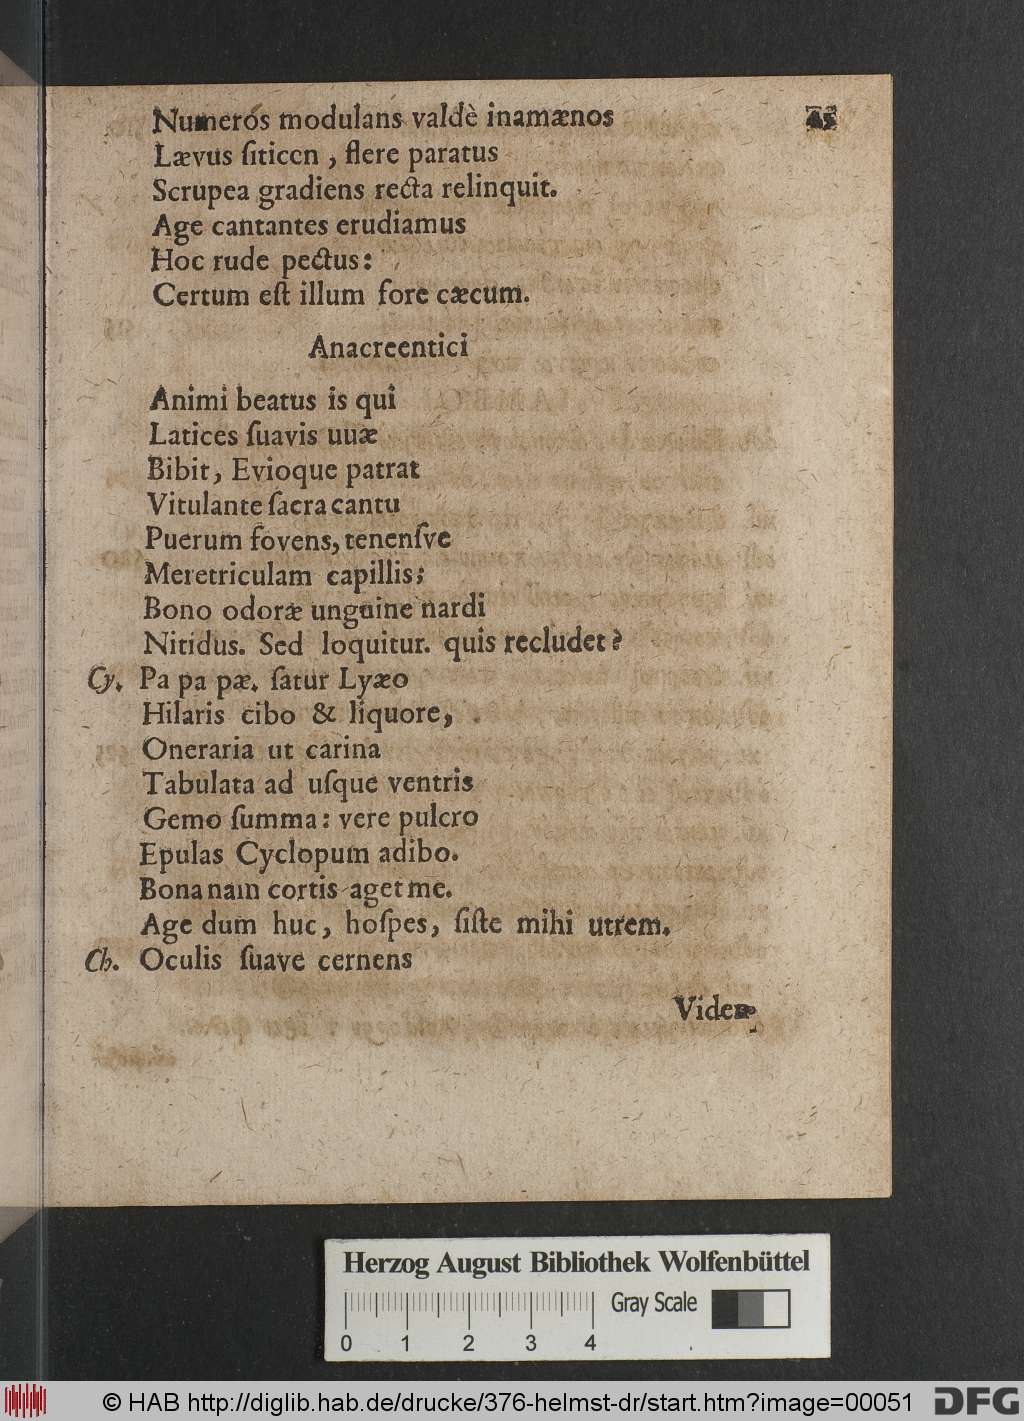 Numeros modulans valdè inamænos 45
Lævus ſiticen , flere paratus
Scrupea gradiens recta relinquit.
Age cantantes erudiamus
Hoc rude pectus:
Certum eſt illum fore cæcum.
Anacreentici
Animi beatus is qui
Latices ſuavis uuæ
Bibit, Evioque patrat
Vitulante ſacra cantu
Puerum fovens, tenenſve
Meretriculam capillis;
Bono odoræ unguine nardi
Nitidus. Sed loquitur. quis recludet?
Cy. Pa pa pæ. ſatur Lyæo
Hilaris cibo & liquore,
Oneraria ut carina
Tabulata ad uſque ventris
Gemo ſumma: vere pulcro
Epulas Cyclopum adibo.
Bona nam cortis aget me.
Age dum huc, hoſpes, ſiſte mihi utrem.
Ch. Oculis ſuave cernens
Herzog August Bibliothek Wolfenbüttel
Gray Scale
0 1 2 3 4
© HAB http://diglib.hab.de/drucke/376-helmst-dr/start.htm?image=00051 DFG